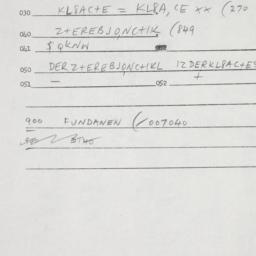 030 KLBAC+E = KLBA,CE xx (270
060 Z+EREBJONC+IK (849
061 $ QKNW
050 DERZ+EREBJONC+IKL 12DERKLBAC+ES
051 — 052 +
900 FUNDANEN (/007040